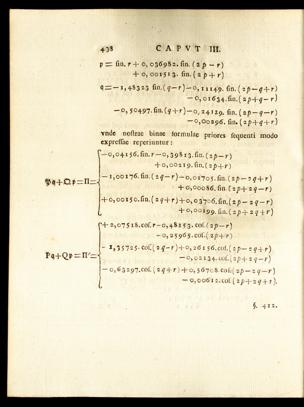 438 CAPVT III.
p = sin. r + 0,036982. sin. (2p−r)
+ 0,001513. sin. (2p+r)
q = −1,48323 sin. (q−r) − 0,11149. sin. (2p−q+r)
− 0,01634. sin. (2p+q−r)
− 0,50497. sin. (q+r) − 0,24129. sin. (2p−q−r)
− 0,00296. sin. (2p+q+r)
vnde nostrae binae formulae priores sequenti modo
expressae reperiuntur:
−0,04156. sin. r − 0,39813. sin. (2p−r)
+ 0,00219. sin. (2p+r)
−1,00176. sin. (2q−r) − 0,01705. sin. (2p−2q+r)
+ 0,00086. sin. (2p+2q−r)
+0,00150. sin. (2q+r) + 0,03706. sin. (2p−2q−r)
+ 0,00199. sin. (2p+2q+r)
+ 2,07518. cos. r − 0,48253. cos. (2p−r)
− 0,25965. cos. (2p+r)
− 1,35725. cos. (2q−r) + 0,26156. cos. (2p−2q+r)
− 0,02134. cos. (2p+2q−r)
Pq + Qp = Π′ =
− 0,63297. cos. (2q+r) + 0,56708. cos. (2p−2q−r)
− 0,00612. cos. (2p+2q+r).
§. 412.